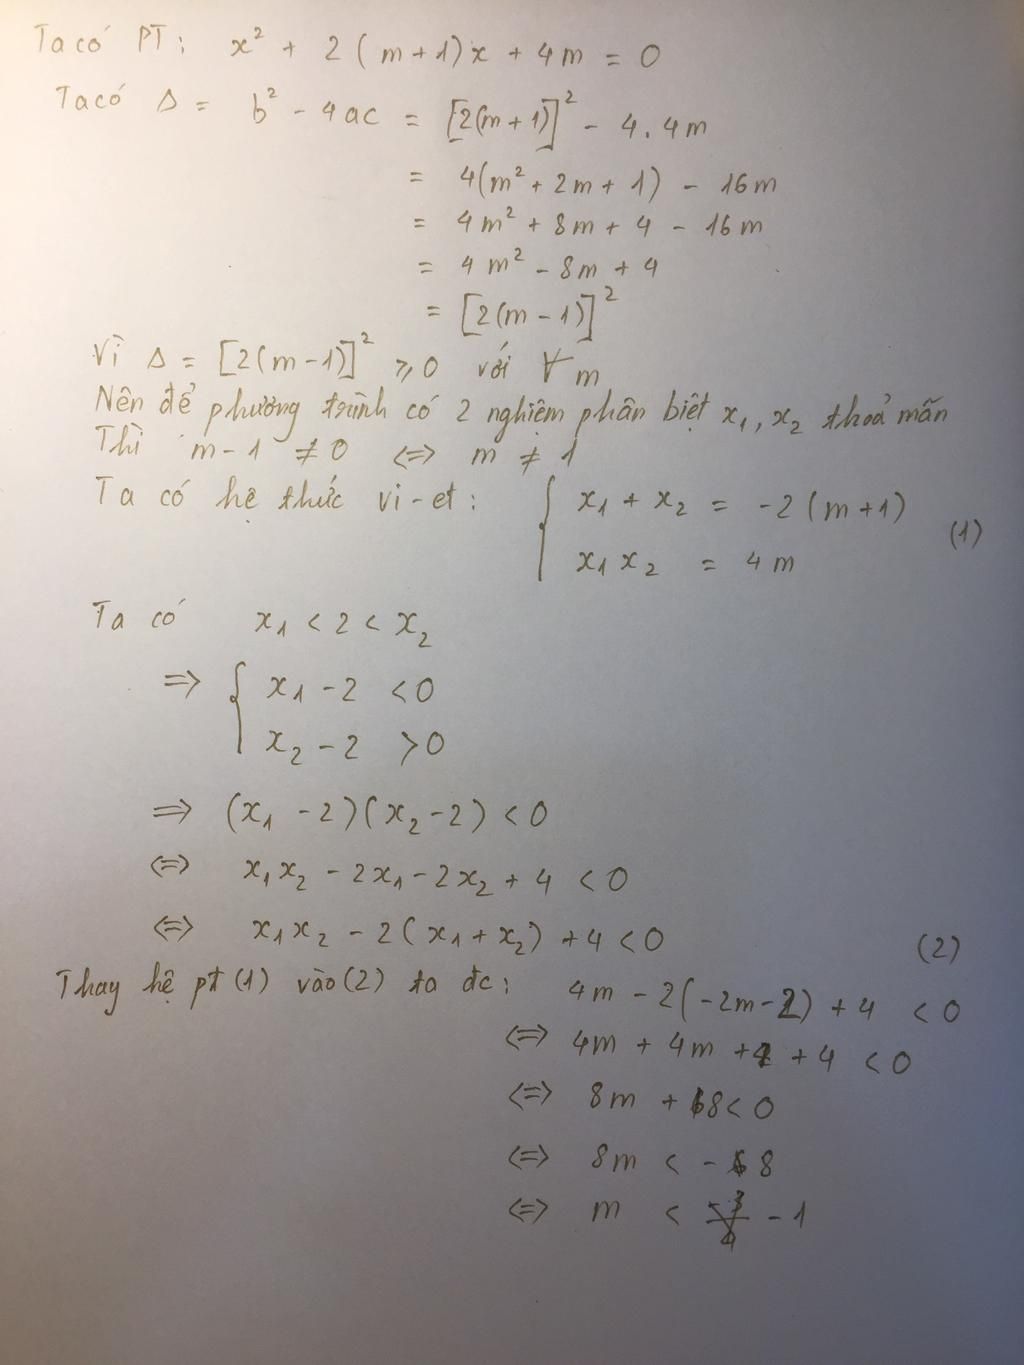 Ta có PT: x² + 2(m+1)x + 4m = 0
Ta có Δ = b² - 4ac = [2(m+1)]² - 4.4m
= 4(m² + 2m + 1) - 16m
= 4m² + 8m + 4 - 16m
= 4m² - 8m + 4
= [2(m-1)]²
Vì Δ = [2(m-1)]² ⩾ 0 với ∀m
Nên để phương trình có 2 nghiệm phân biệt x₁, x₂ thoả mãn
Thì m-1 ≠ 0 <=> m ≠ 1
Ta có hệ thức vi-et: { x₁ + x₂ = -2(m+1)
x₁x₂ = 4m (1)
Ta có x₁ < 2 < x₂
=> { x₁ - 2 < 0
x₂ - 2 > 0
=> (x₁ - 2)(x₂ - 2) < 0
<=> x₁x₂ - 2x₁ - 2x₂ + 4 < 0
<=> x₁x₂ - 2(x₁ + x₂) + 4 < 0 (2)
Thay hệ pt (1) vào (2) ta đc: 4m - 2(-2m - 2) + 4 < 0
<=> 4m + 4m + 4 + 4 < 0
<=> 8m + 8 < 0
<=> 8m < - 8
<=> m < - 1